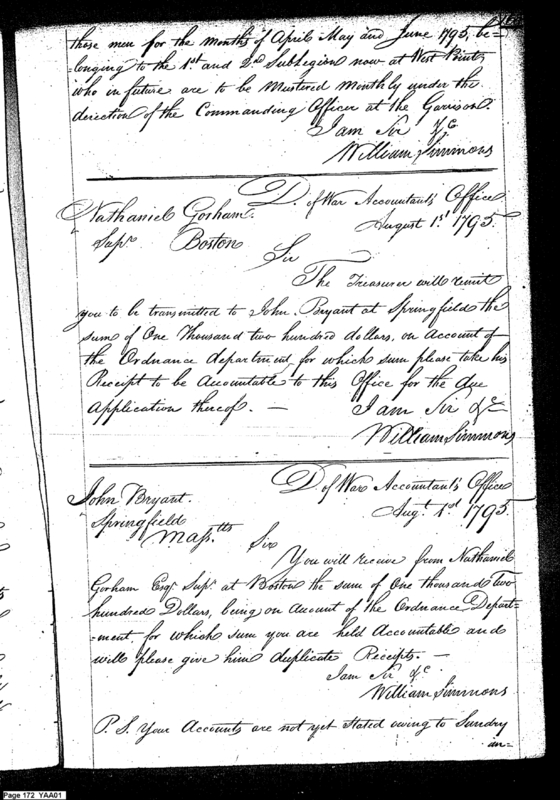 those men for the months of April May and June 1795, be=
=longing to the 1st and 2nd SubLegion now at West Point,
who in future are to be Mustered Monthly under the
direction of the Commanding Officer at the Garrison.
I am Sir &c
William Simmons
D. of War Accountant's Office
August 1st 1795.
Nathaniel Gorham.
Supr. Boston
Sir
The Treasurer will remit
you to be transmitted to John Bryant at Springfield the
sum of One Thousand two hundred dollars, on account of
the Ordnance department, for which sum please take his
Receipt to be Accountable to this Office for the due
Application thereof. —
I am Sir &c
William Simmons
D of War Accountant's Office
Augt. 1st 1795.
John Bryant.
Springfield
Massts.
Sir
You will receive from Nathaniel
Gorham Esqr. Supr. at Boston the sum of One thousand Two
hundred Dollars, being on Account of the Ordnance Depart-
=ment, for which sum you are held Accountable and
will please give him duplicate Receipts. —
I am Sir &c.
William Simmons
P.S. Your Accounts are not yet Stated owing to Sundry
in=
Page 172 YAA01